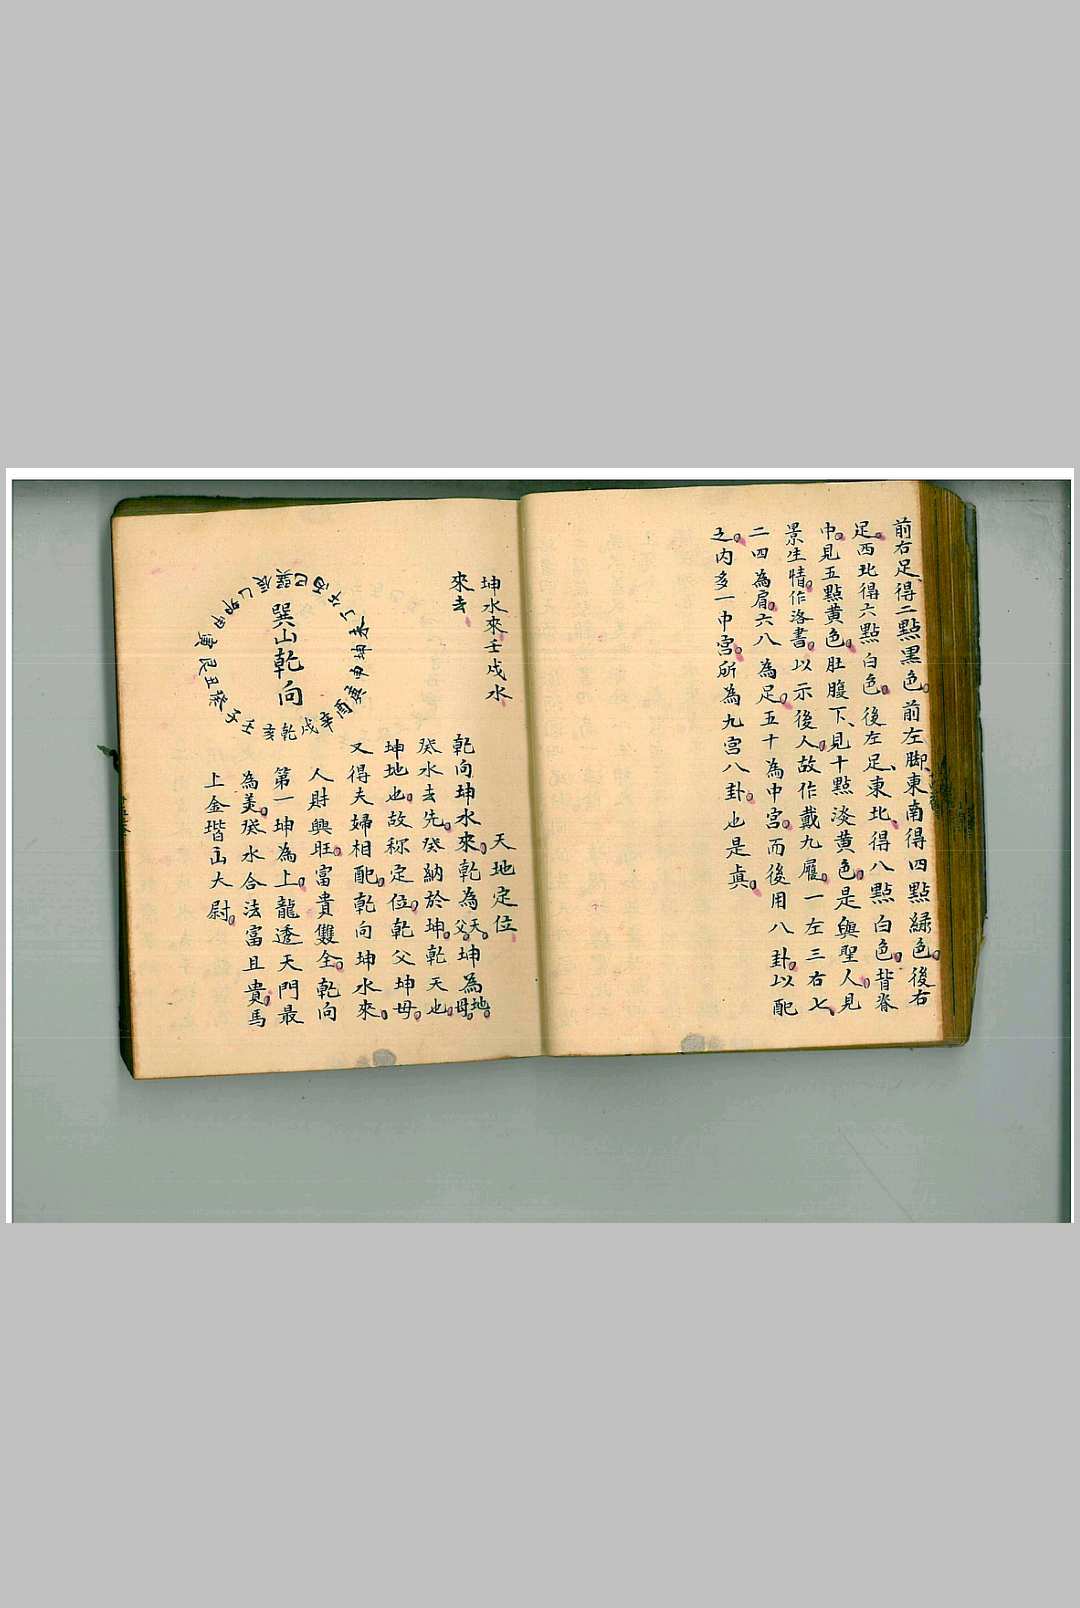 前右足、得二點黑色。前左脚、東南得四點綠色。後右
足。西北得六點白色。後左足、東北得八點白色。背脊
中。見五點黄色。肚腹下、見十點淡黄色。是與聖人見
景生情。作洛書。以示後人。故作戴九履。一左三右七、
二四為肩。六八為足。五十為中宮。而後用八卦。以配
之。内多一中宮。所為九宮八卦。也是真。
坤水來壬戍水
來去
巽山乾向
巽辰乙卯甲寅艮丑癸子壬亥乾戍辛酉庚申坤未丁午丙巳
天地定位
乾向坤水來。乾為天父。坤為地母。
癸水去先。癸納於坤。乾天也。
坤地也。故称定位。乾父坤母。
又得夫婦相配。乾向坤水來。
人財興旺。富貴雙全。乾向
第一坤為上。龍透天門最
為美。癸水合法富且貴。馬
上金堦山大尉。